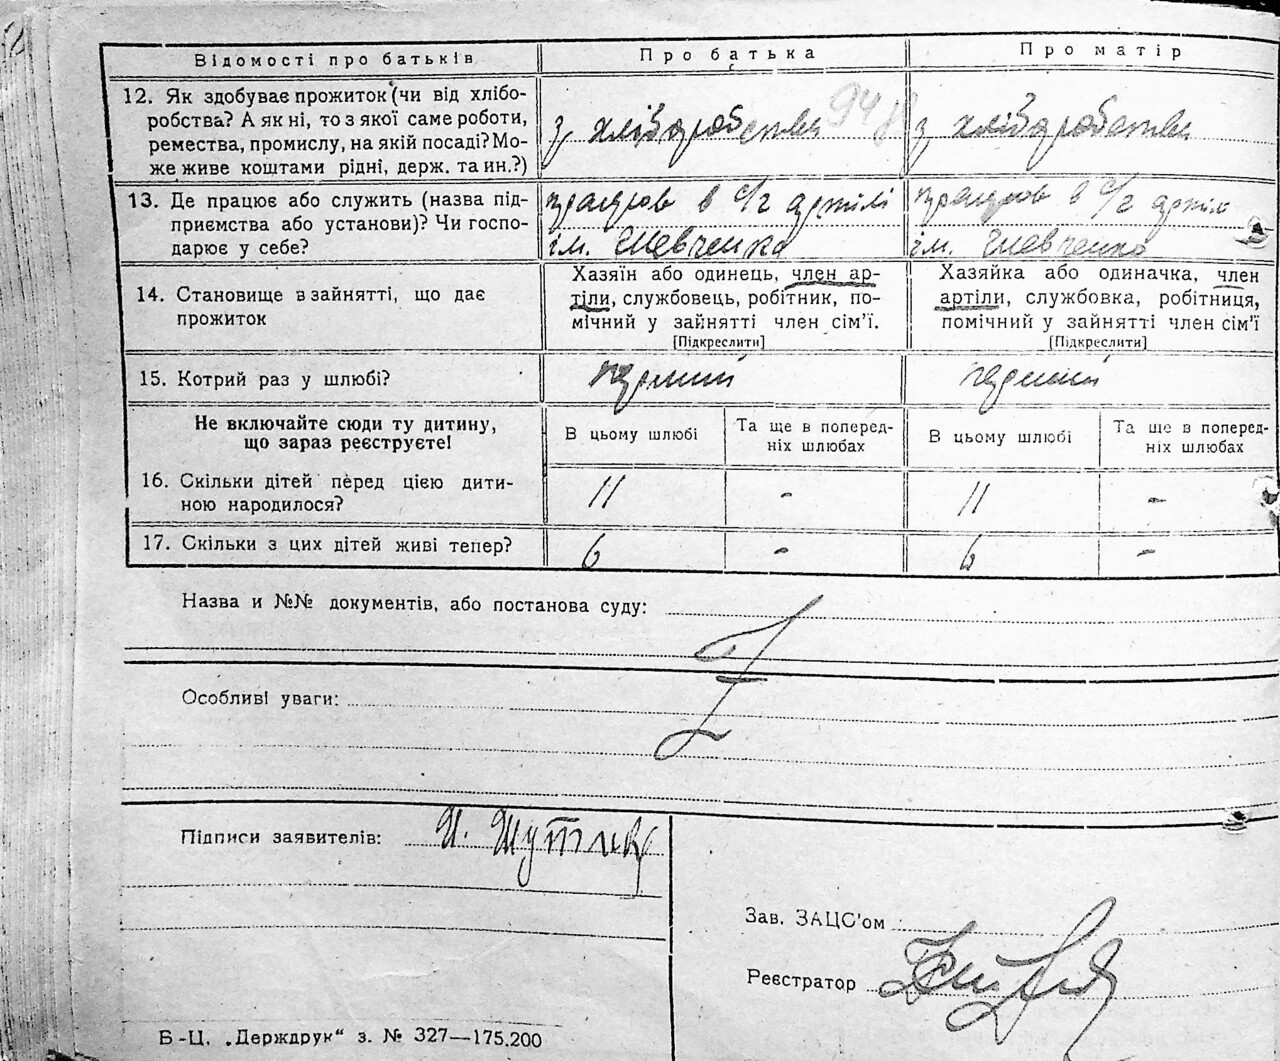 Відомості про батьків
Про батька
Про матір
12. Як здобуває прожиток (чи від хлібо-
робства? А як ні, то з якої саме роботи,
ремества, промислу, на якій посаді? Мо-
же живе коштами рідні, держ. та ин.?)
з хліборобства
948
з хліборобства
13. Де працює або служить (назва під-
приємства або установи)? Чи госпо-
дарює у себе?
працює в с/г артілі
ім. Шевченка
працює в с/г артілі
ім. Шевченка
14. Становище в зайнятті, що дає
прожиток
Хазяїн або одинець, член ар-
тіли, службовець, робітник, по-
мічний у зайнятті член сім'ї.
[Підкреслити]
Хазяйка або одиначка, член
артіли, службовка, робітниця,
помічний у зайнятті член сім'ї
[Підкреслити]
15. Котрий раз у шлюбі?
перший
перший
Не включайте сюди ту дитину,
що зараз реєструєте!
В цьому шлюбі
Та ще в поперед-
ніх шлюбах
В цьому шлюбі
Та ще в поперед-
ніх шлюбах
16. Скільки дітей перед цією дити-
ною народилося?
11
-
11
-
17. Скільки з цих дітей живі тепер?
6
-
6
-
Назва и №№ документів, або постанова суду:
Особливі уваги:
Підписи заявителів:
Зав. ЗАЦС'ом
Реєстратор
Б-Ц. „Держдрук" з. № 327—175.200